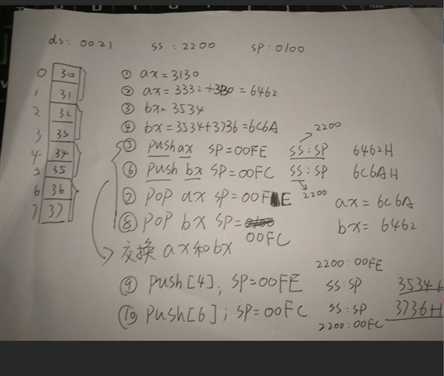 ds: 0021 ss: 2200 sp: 0100
0 30
1 31
2 32
3 33
4 34
5 35
6 36
7 37
① ax=3130
② ax=3332+3130=6462
③ bx=3534
④ bx=3534+3736=6C6A
2200
⑤ push ax SP=00FE SS:SP 6462H
⑥ push bx SP=00FC SS:SP 6C6AH
2200
⑦ POP ax SP=00FE ax=6C6A
⑧ POP bx SP= bx=6462
00FC
交换 ax和bx
2200:00FE
⑨ push[4], SP=00FE SS:SP 3534H
⑩ push[6]; SP=00FC SS:SP 3736H
2200:00FC